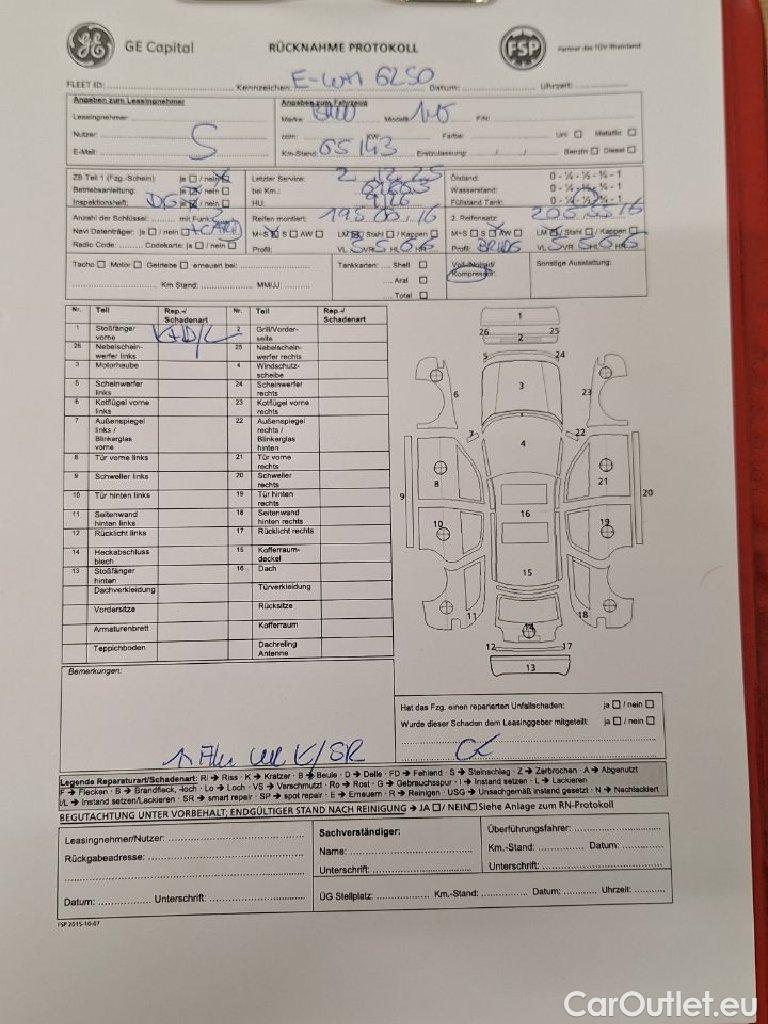 GE Capital RÜCKNAHME PROTOKOLL FSP Partner des TÜV Rheinland
FLEET ID: Kennzeichen: Datum: Uhrzeit:
Angaben zum Leasingnehmer Angaben zum Fahrzeug
Leasingnehmer: Marke: Modell: FIN:
Nutzer: S ccm: KW: Farbe: Uni Metallic
E-Mail: Km-Stand: 65143 Erstzulassung: / / Benzin Diesel
ZB Teil 1 (Fzg.-Schein): ja / nein Letzter Service: 2.12.25 Ölstand: 0 - ¼ - ½ - ¾ - 1
Betriebsanleitung: ja / nein bei Km.: Wasserstand: 0 - ¼ - ½ - ¾ - 1
Inspektionsheft: ja / nein HU: Füllstand Tank: 0 - ¼ - ½ - ¾ - 1
Anzahl der Schlüssel: mit Funk: 2 Reifen montiert: 2. Reifensatz:
Navi Datenträger: ja / nein M+S S AW LM / Stahl / Kappen M+S S AW LM / Stahl / Kappen
Radio Code: Codekarte: ja / nein Profil: VL VR HL HR Profil: VL VR HL HR
Tacho Motor Getriebe erneuert bei: Tankkarten: Shell Sonstige Ausstattung:
Km Stand: MM/JJ: Aral Kompressor:
Total
Nr. Teil Rep.-/ Schadenart Nr. Teil Rep.-/ Schadenart
1 Stoßfänger vorne 2 Grill/Vorderseite
26 Nebelscheinwerfer links 25 Nebelscheinwerfer rechts
3 Motorhaube 4 Windschutzscheibe
5 Scheinwerfer links 24 Scheinwerfer rechts
6 Kotflügel vorne links 23 Kotflügel vorne rechts
7 Außenspiegel links / Blinkerglas vorne 22 Außenspiegel rechts / Blinkerglas hinten
8 Tür vorne links 21 Tür vorne rechts
9 Schweller links 20 Schweller rechts
10 Tür hinten links 19 Tür hinten rechts
11 Seitenwand hinten links 18 Seitenwand hinten rechts
12 Rücklicht links 17 Rücklicht rechts
14 Heckabschlussblech 15 Kofferraumdeckel
13 Stoßfänger hinten 16 Dach
Dachverkleidung Türverkleidung
Vordersitze Rücksitze
Armaturenbrett Kofferraum
Teppichboden Dachreling Antenne
1
26 25
2
5 24
3
6 23
7 22
4
8 21
9 20
16
10 19
15
11 18
14
12 17
13
Bemerkungen:
Hat das Fzg. einen reparierten Unfallschaden: ja / nein
Wurde dieser Schaden dem Leasinggeber mitgeteilt: ja / nein
Legende Reparaturart/Schadenart: RI → Riss · K → Kratzer · B → Beule · D → Delle · FD → Fehlend · S → Steinschlag · Z → Zerbrochen · A → Abgenutzt
F → Flecken · B → Brandfleck, -loch · Lo → Loch · VS → Verschmutzt · Ro → Rost · G → Gebrauchsspur · I → Instand setzen · L → Lackieren
I/L → Instand setzen/Lackieren · SR → smart repair · SP → spot repair · E → Erneuern · R → Reinigen · USG → Unsachgemäß instand gesetzt · N → Nachlackiert
BEGUTACHTUNG UNTER VORBEHALT; ENDGÜLTIGER STAND NACH REINIGUNG → JA / NEIN Siehe Anlage zum RN-Protokoll
Leasingnehmer/Nutzer: Sachverständiger: Überführungsfahrer:
Rückgabeadresse: Name: Km.-Stand: Datum:
Unterschrift: Unterschrift:
Datum: Unterschrift: ÜG Stellplatz: Km.-Stand: Datum: Uhrzeit:
FSP 2015-10-07
CarOutlet.eu